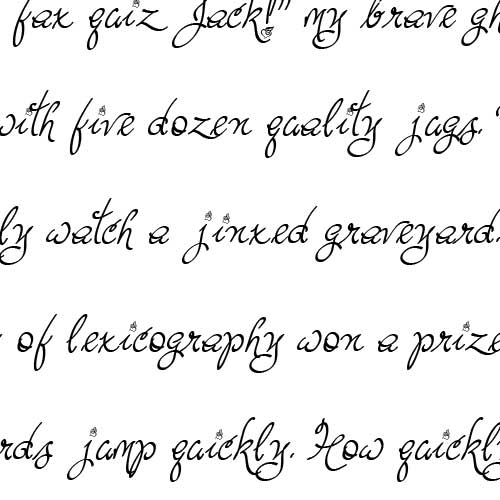 fax quiz Jack!" my brave gh
with five dozen quality jugs.
ly watch a jinxed graveyard.
of lexicography won a prize
rds jump quickly. How quickly